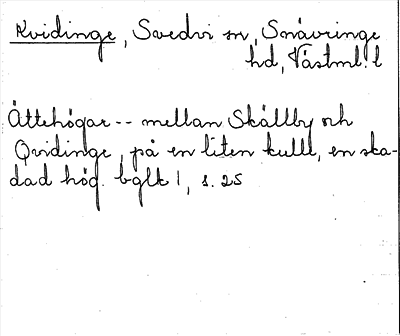 Kvidinge, Svedvi sn, Snävringe
hd, Västml. l
Ättehögar -- mellan Skållby och
Qvidinge, på en liten kulle, en ska-
dad hög. bglk 1, s. 25